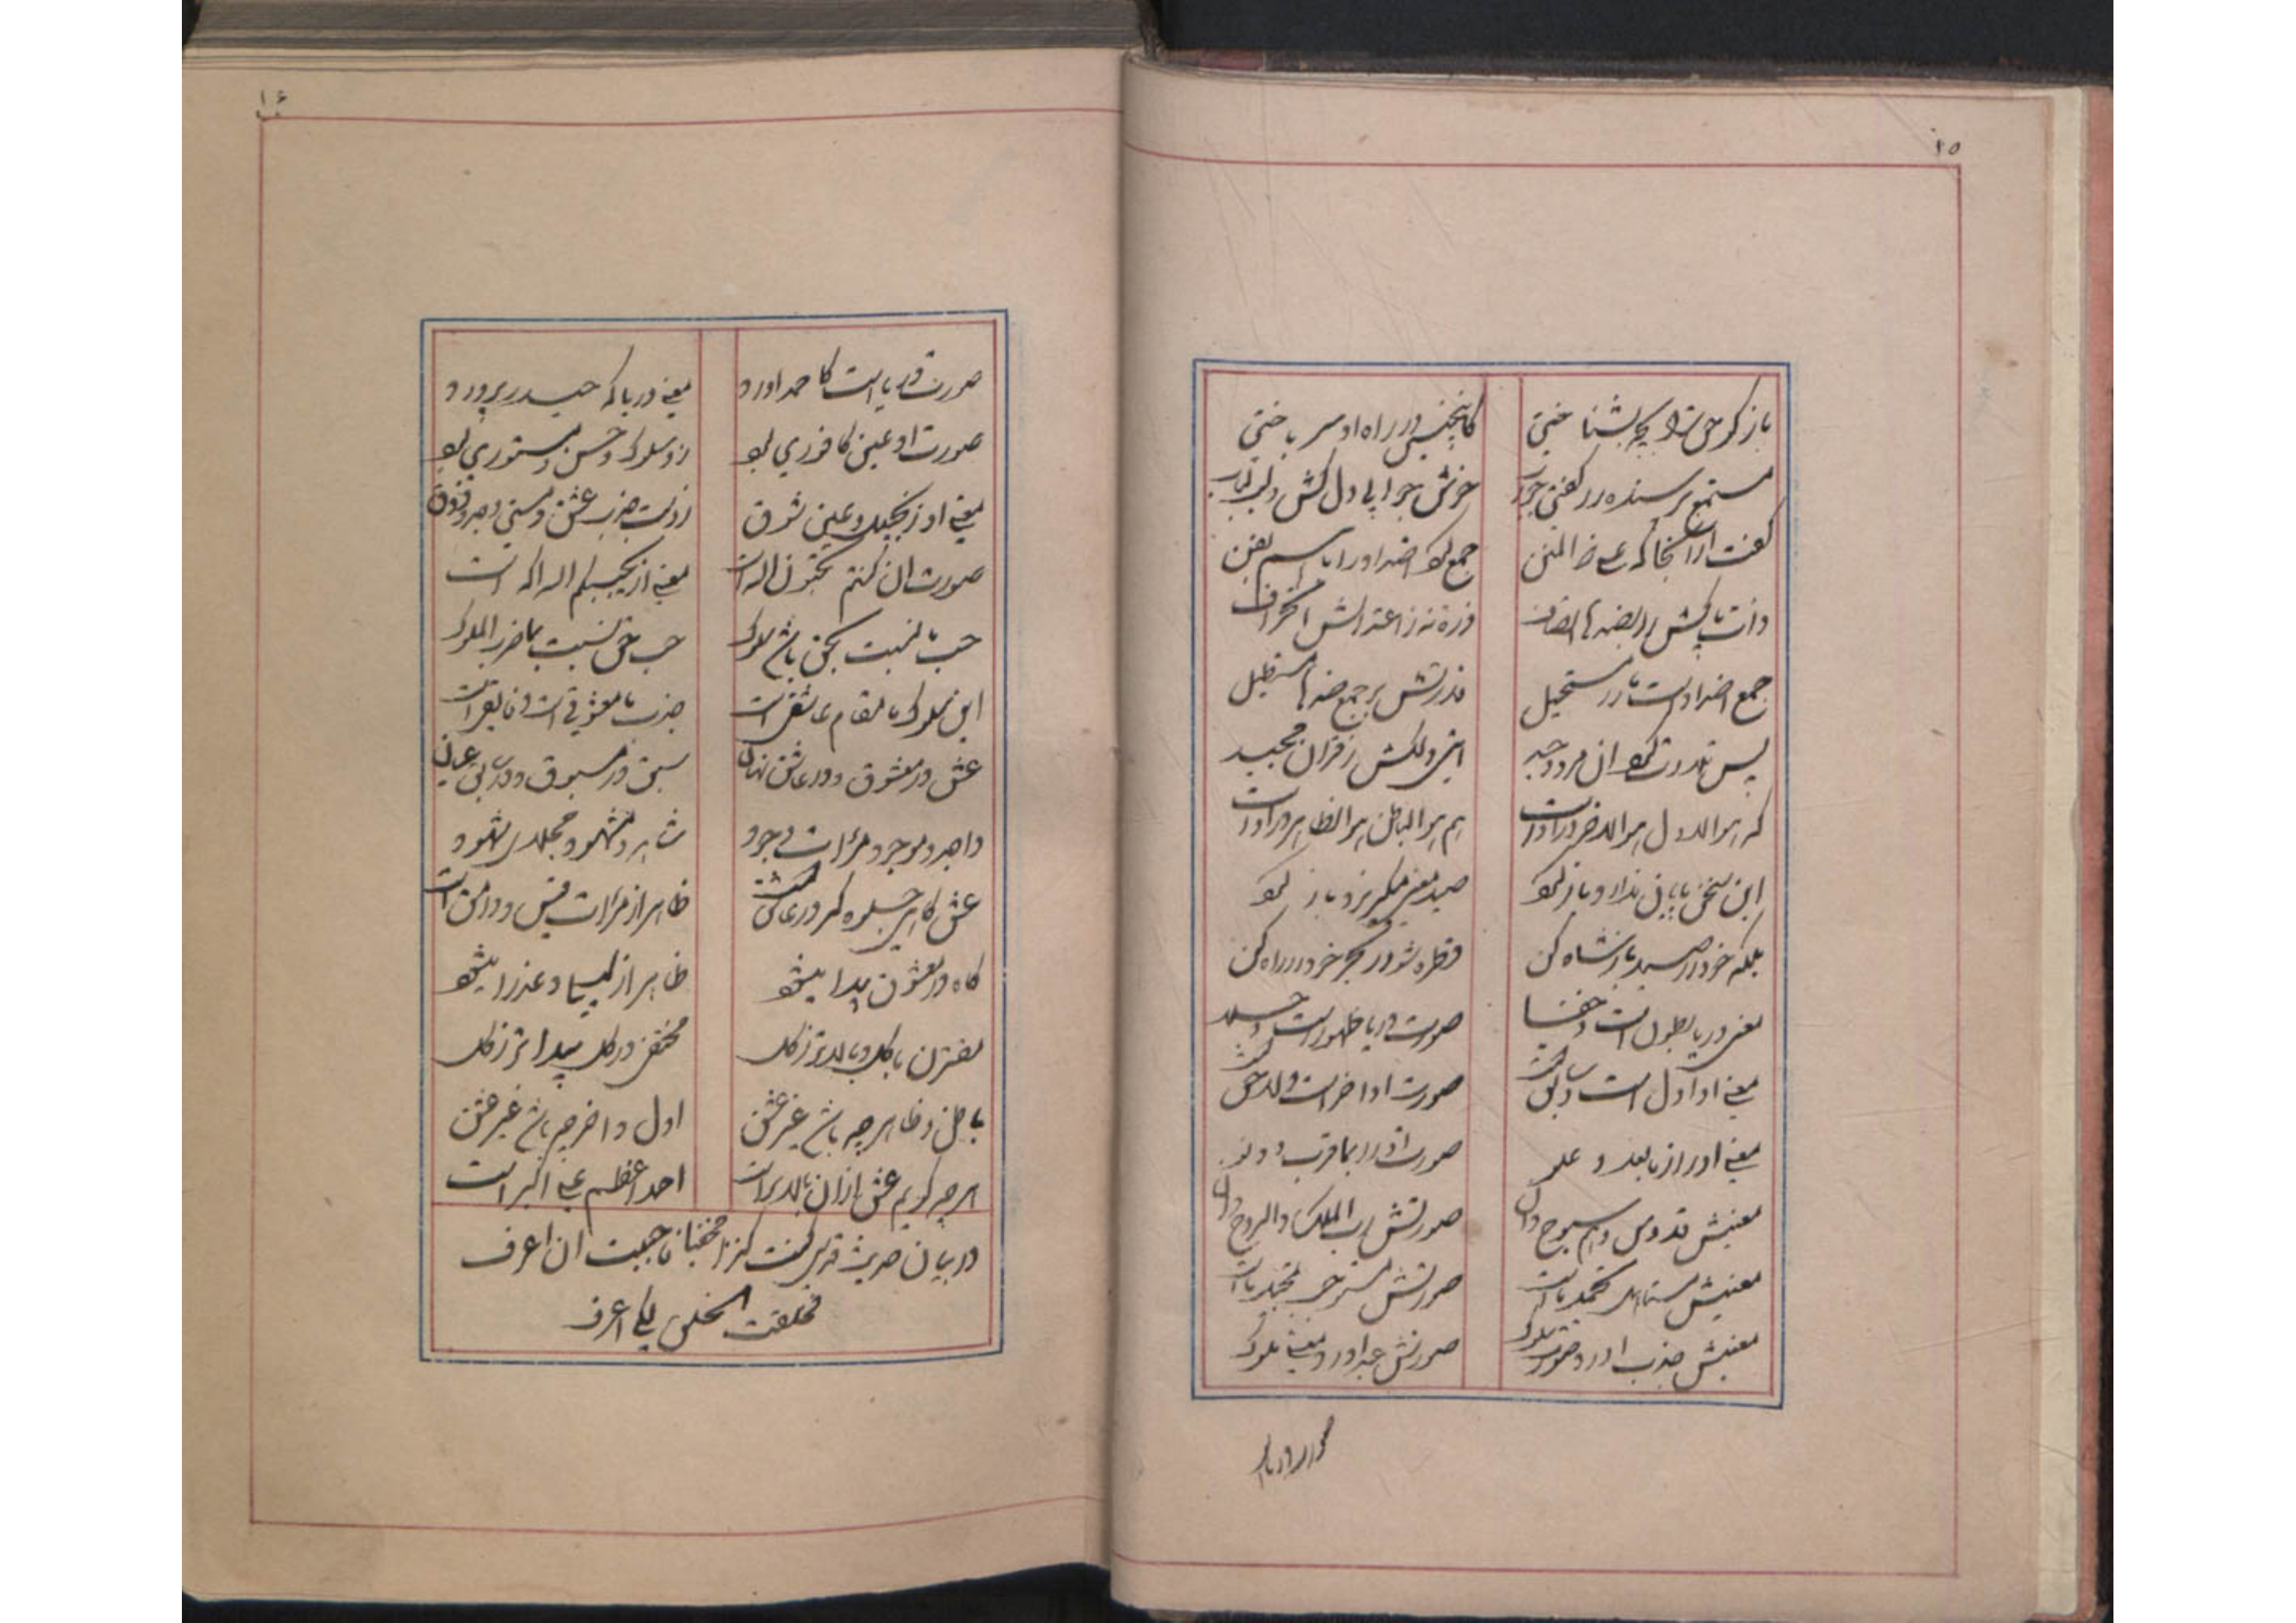 ۱۵
باز گو حق را بچه بشناختی
کاینچنین در راه او سر باختی
مستمع پرسنده در گفتن جواب
خوش جوابی دلکش و لب لباب
گفت از آنجا که علی ذو المنن
جمع بود اضداد را با سم بفن
ذات پاکش را بضدها اتصاف
ذره نه ز اعتدالش انحراف
جمع اضداد است در ما مستحیل
قدرتش بر جمع ضدها مستطیل
پس بقدرت بود آن فرد وحید
این دلکش ز قرآن مجید
که هو الاول هو الاخر در اوست
هم هو الباطن هو الظاهر در اوست
این سخن پایان ندارد باز گو
صید معنی میگریزد باز گو
بلکه خود را صید باز شاه کن
قطره شو در بحر خود را راه کن
معنی دریا بطون است و خفا
صورت دریا ظهور است و جلا
معنی او اول است و سابقش
صورت او آخر است و لاحقش
معنی او را ز ما بعد و علو
صورت او را بما قرب و دنو
معنیش قدوس و هم سبوح دان
صورتش رب الملک والروح دان
معنیش
صورتش
معنیش جذب آورد صورت سلوک
صورتش عبد آورد معنی ملوک
صورت دریا
۱۶
صورت دریاست کاحمد آورد
معنی دریا که حیدر پرورد
صورت او عین کافوری بود
زو سلوک و حسن و مستوری بود
معنی او زنجبیل و عین شوق
زوست جذب عشق و مستی وجد و ذوق
صورت ان کنتم تحبون اله است
معنی از یحببکم اله آگه است
حب ما نسبت بحق باشد سلوک
حب حق نسبت بما جذب الملوک
این سلوک ما مقام عاشقی است
جذب ما معشوقی است و فایقی است
عشق در معشوق و در عاشق نهان
سبق در مسبوق و در سابق عیان
واجد و موجود و مرآت وجود
شاهد و مشهود و مجلای شهود
عشق گاهی جلوه گر در عاشق است
ظاهر از مرآت قیس و وامق است
گاه در معشوق پیدا میشود
ظاهر از لیلی و عذرا میشود
مقترن با کل و بالاتر ز کل
مختفی در کل و پیدا تر ز کل
باطن و ظاهر چه باشد غیر عشق
اول و آخر چه باشد غیر عشق
هر چه گویم عشق از آن بالاتر است
احد اعظم علی اکبر است
در بیان حدیث قدسی کنت کنزا مخفیا فاحببت ان اعرف
فخلقت الخلق لکی اعرف